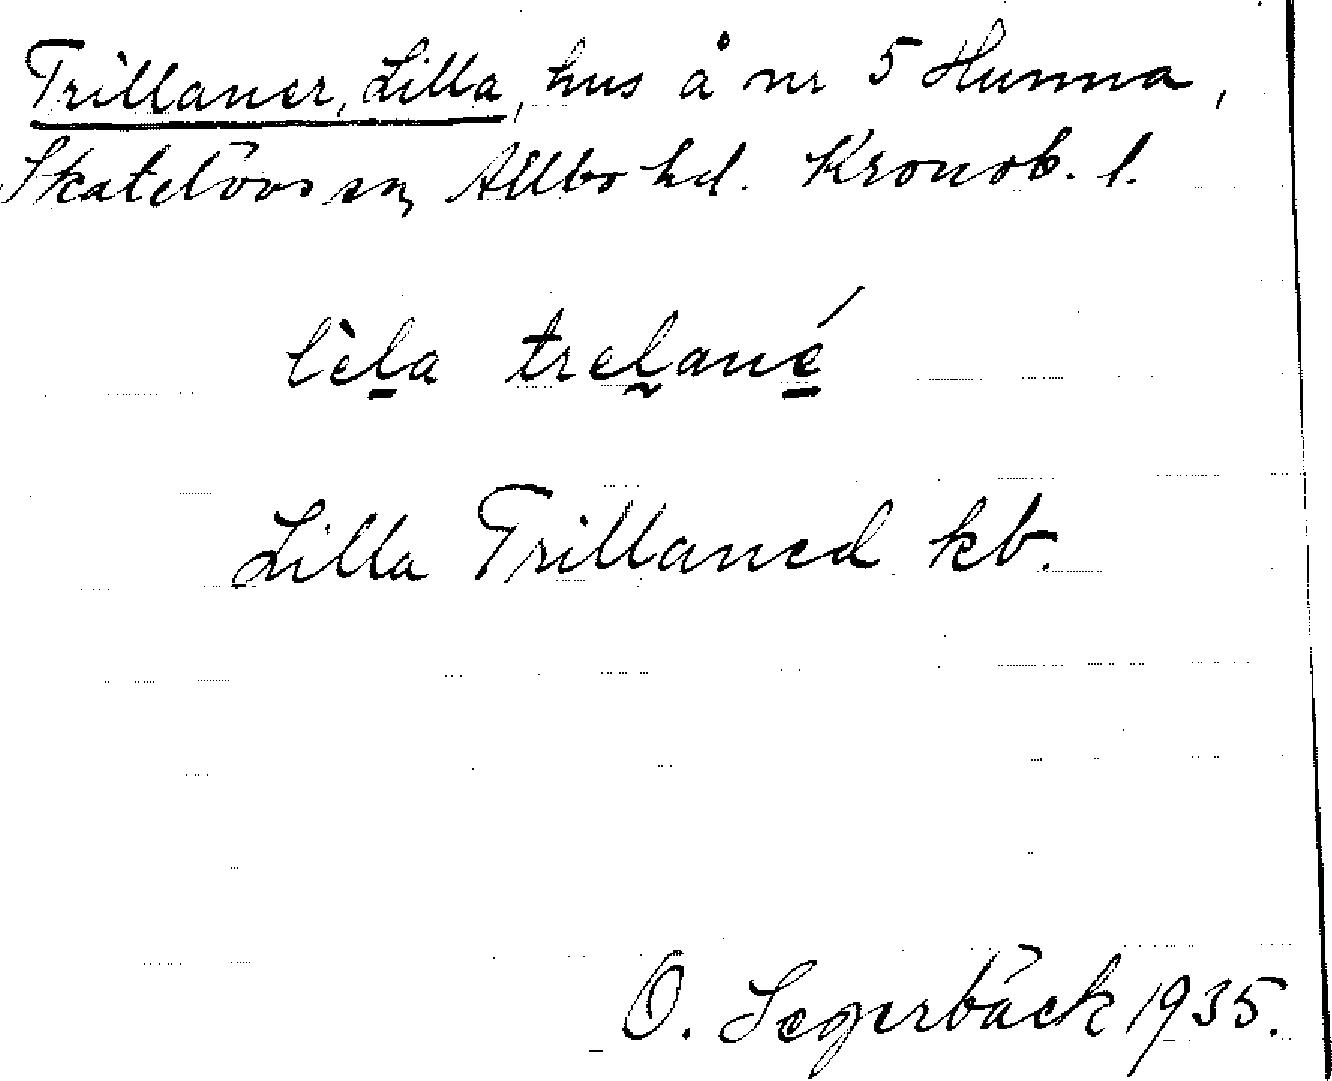 Trillaner, Lilla, hus å nr 5 Hunna,
Skatelövs sn, Allbo hd. Kronob. l.
lèl̠a trel̰ané̠
Lilla Trillaned kb.
O. Segerbäck 1935.